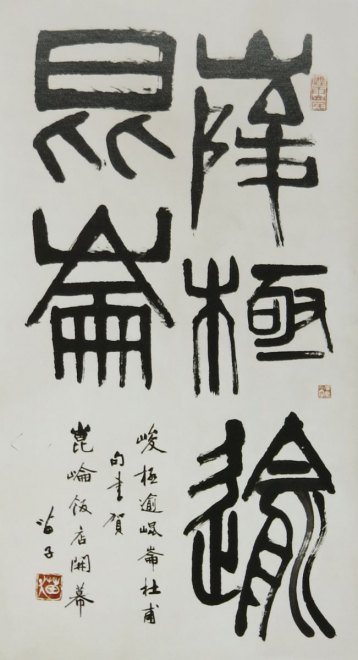 峻極逾
昆崙
峻極逾崐崙杜甫
句書賀
崑崙飯店開幕
苗子